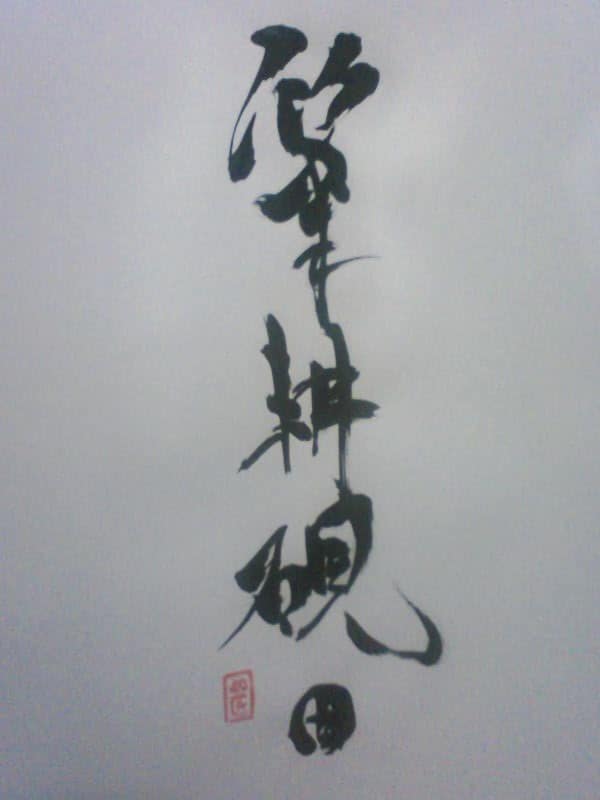 筆耕硯田